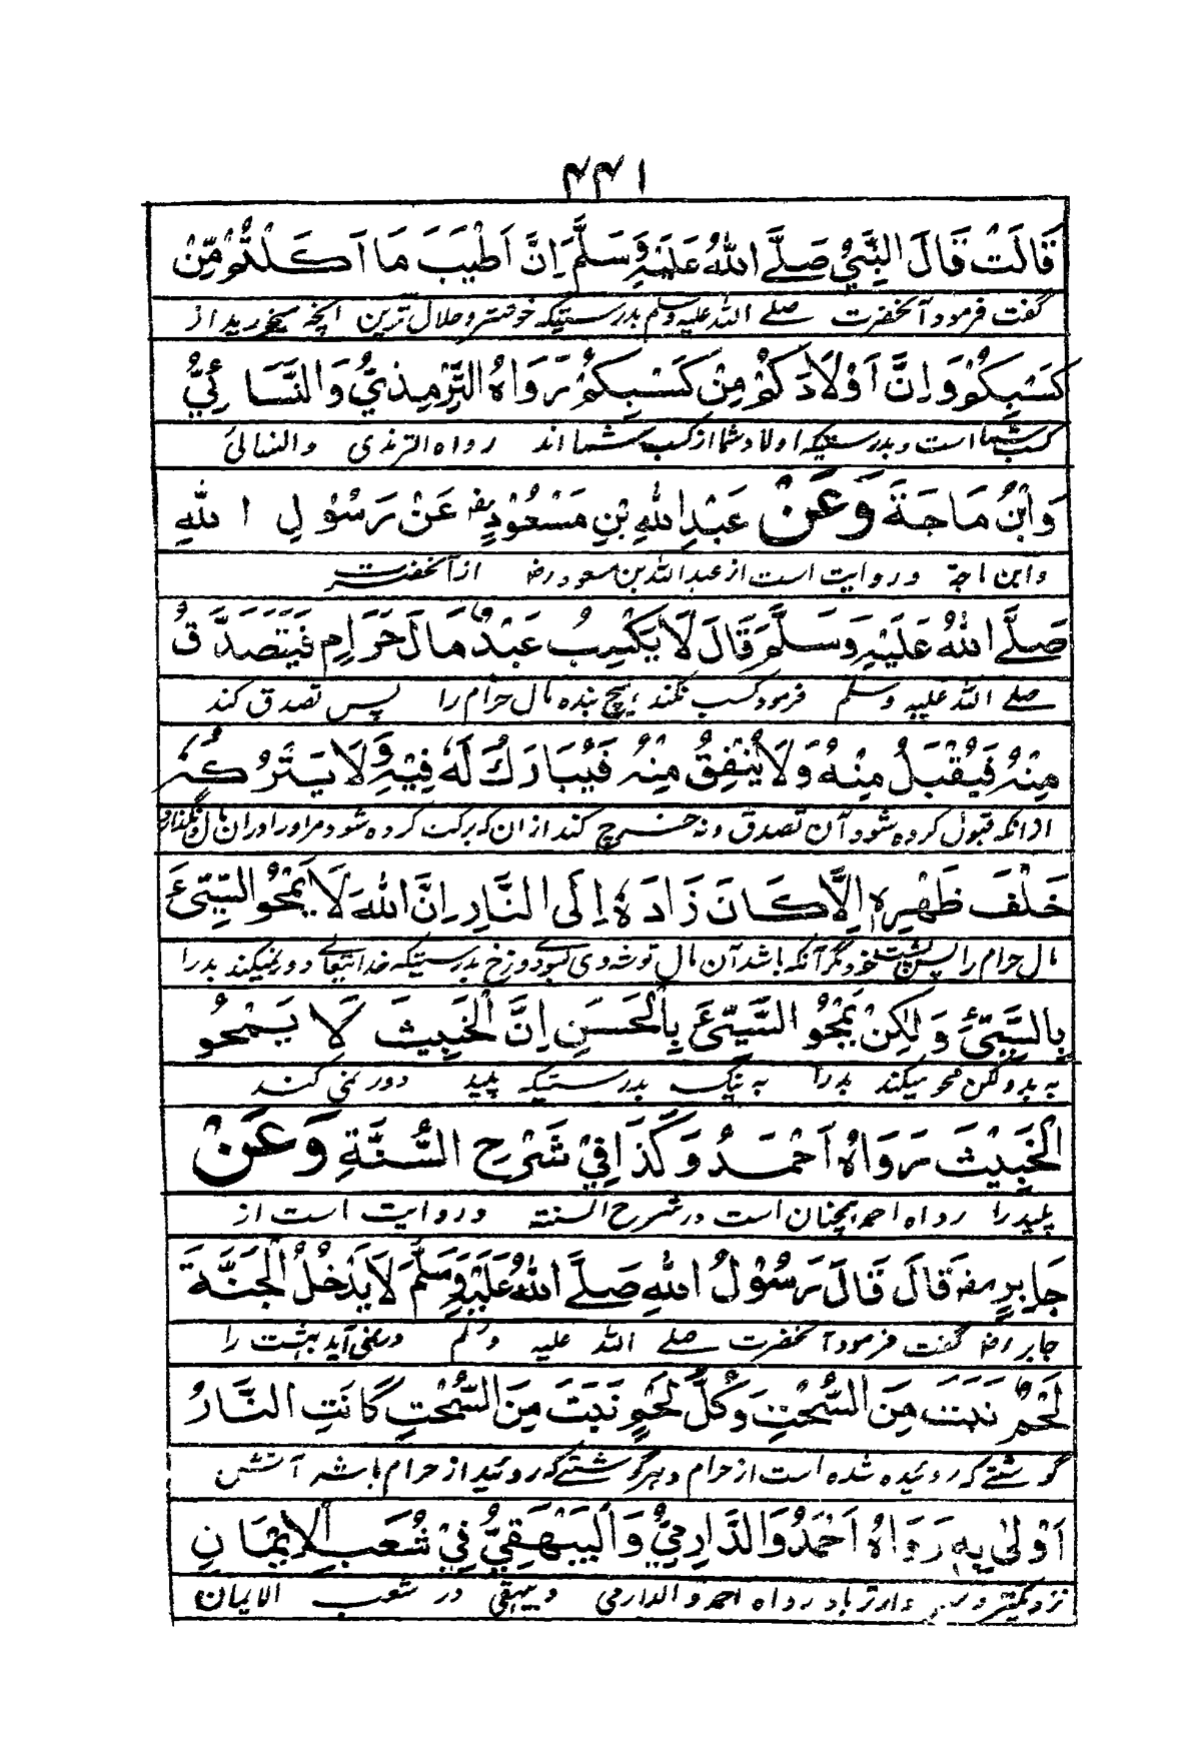 ۴۴۱
قَالَتْ قَالَ النَّبِيُّ صَلَّے اللهُ عَلَيْهِ وَسَلَّمَ اِنَّ اَطْيَبَ مَا اَكَلْتُمْ مِّنْ
گفت فرمود آنحضرت صلے اللہ علیہ وسلم بدرستیکہ خوشتر و حلال ترین آنچہ میخورید از
كَسْبِكُمْ وَاِنَّ اَوْلَادَكُمْ مِنْ كَسْبِكُمْ رَوَاهُ التِّرْمِذِيُّ وَالنَّسَائِيُّ
کسب شما است و بدرستیکہ اولاد شما از کسب شما اند رواہ الترمذی والنسائی
وَابْنُ مَاجَةَ وَعَنْ عَبْدِ اللهِ بْنِ مَسْعُوْدٍ رض عَنْ رَسُوْلِ اللهِ
وابن ماجۃ و روایت است از عبد اللہ بن مسعود رضہ از آنحضرت
صَلَّے اللهُ عَلَيْهِ وَسَلَّمَ قَالَ لَا يَكْسِبُ عَبْدٌ مَالَ حَرَامٍ فَيَتَصَدَّقُ
صلے اللہ علیہ وسلم فرمود کسب نکند ہیچ بندہ مال حرام را پس تصدق کند
مِنْهُ فَيُقْبَلُ مِنْهُ وَلَا يُنْفِقُ مِنْهُ فَيُبَارَكُ لَهٗ فِيْهِ وَلَا يَتْرُكُهٗ
ازانکہ قبول کردہ شود آن تصدق و نہ خرچ کند ازان کہ برکت کردہ شود مر او را دران مال و نگذارد
خَلْفَ ظَهْرِهٖ اِلَّا كَانَ زَادَهٗ اِلَى النَّارِ اِنَّ اللهَ لَا يَمْحُو السَّيِّئَ
مال حرام را پس پشت خود مگر آنکہ باشد آن مال توشہ وی بسوے دوزخ بدرستیکہ خدا تعالے دور نمیکند بد را
بِالسَّيِّئِ وَلٰكِنْ يَمْحُو السَّيِّئَ بِالْحَسَنِ اِنَّ الْخَبِيْثَ لَا يَمْحُو
بہ بد ولکن محو میکند بد را بہ نیک بدرستیکہ پلید دور نمی کند
الْخَبِيْثَ رَوَاهُ اَحْمَدُ وَكَذَا فِيْ شَرْحِ السُّنَّةِ وَعَنْ
پلید را رواہ احمد ہمچنان است در شرح السنتہ و روایت است از
جَابِرٍ رض قَالَ قَالَ رَسُوْلُ اللهِ صَلَّے اللهُ عَلَيْهِ وَسَلَّمَ لَا يَدْخُلُ الْجَنَّةَ
جابر رضہ گفت فرمود آنحضرت صلے اللہ علیہ وسلم در نمی آید بہشت را
لَحْمٌ نَبَتَ مِنَ السُّحْتِ وَكُلُّ لَحْمٍ نَبَتَ مِنَ السُّحْتِ كَانَتِ النَّارُ
گوشتے کہ روئیدہ شدہ است از حرام و ہر گوشتے کہ روئید از حرام باشد آتش
اَوْلٰى بِهٖ رَوَاهُ اَحْمَدُ وَالدَّارِمِيُّ وَالْبَيْهَقِيُّ فِيْ شُعَبِ الْاِيْمَانِ
نزدیکتر و رواہ احمد و الدارمی و بیہقی در شعب الایمان